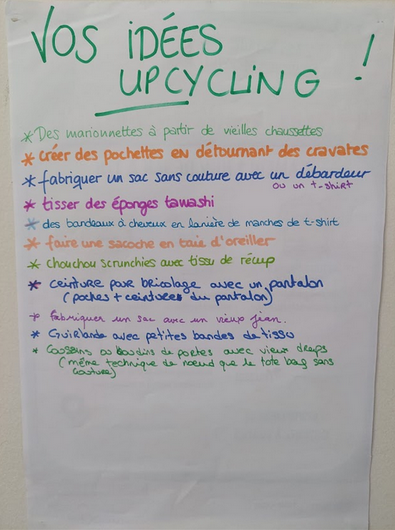 VOS IDÉES
UPCYCLING !
* Des marionnettes à partir de vieilles chaussettes
* créer des pochettes en détournant des cravates
* fabriquer un sac sans couture avec un débardeur
ou un t-shirt
* tisser des éponges tawashi
* des bandeaux à cheveux en lanière de manches de t-shirt
* faire une sacoche en taie d'oreiller
* chouchou scrunchies avec tissu de récup
* ceinture pour bricolage avec un pantalon
(poches + ceintures du pantalon)
* fabriquer un sac avec un vieux jean.
* Guirlande avec petites bandes de tissu
* Coussins ou Boudins de portes avec vieux draps
(même technique de nœud que le tote bag sans
couture)